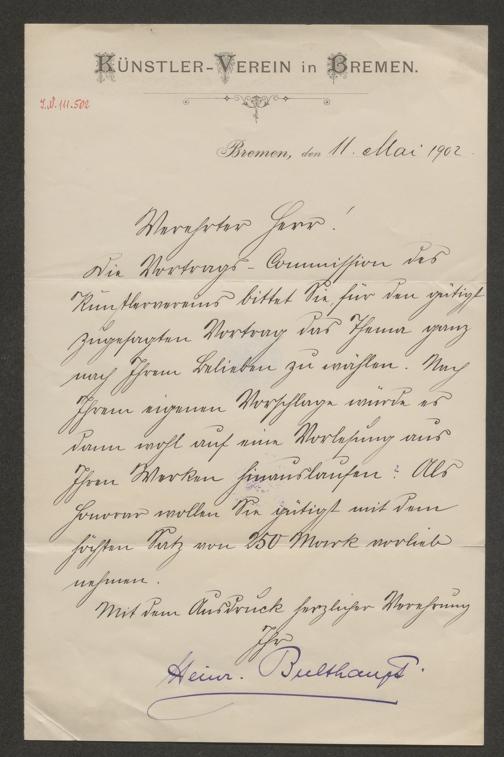 KÜNSTLER-VEREIN in BREMEN.
I.N. 111.502
Bremen, den 11. Mai 1902.
Verehrter Herr!
Die Vortrags-Commission des
Künstlervereins bittet Sie, für den gütigst
zugesagten Vortrag das Thema ganz
nach Ihrem Belieben zu wählen. Nach
Ihrem eigenen Vorschlage würde es
dann wohl auf eine Vorlesung aus
Ihren Werken hinauslaufen? Als
Honorar wollen Sie gütigst mit dem
höchsten Satz von 250 Mark vorlieb
nehmen.
Mit dem Ausdruck herzlicher Verehrung
Ihr
Heinr. Bulthaupt.